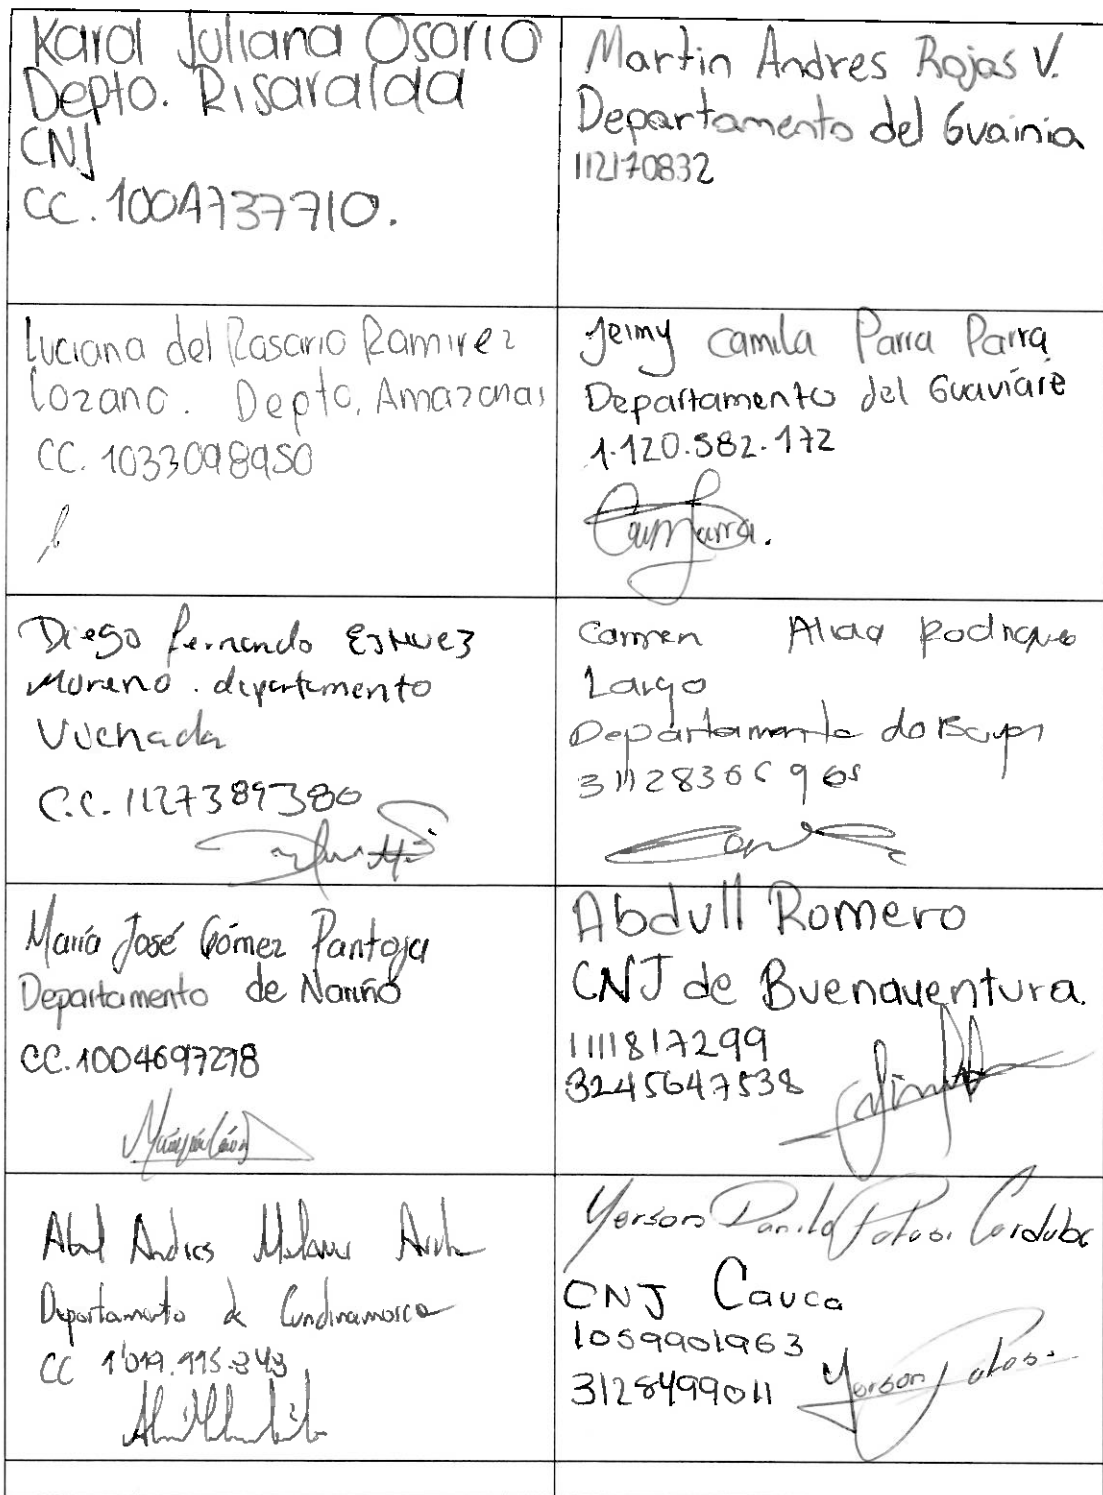 Karol Juliana Osorio
Depto. Risaralda
CNJ
CC. 1004737710.
Martin Andres Rojas V.
Departamento del Guainia
112170832
Luciana del Rosario Ramirez
Lozano. Depto. Amazonas
CC. 1033098950
Jeimy Camila Parra Parra
Departamento del Guaviare
1.120.582.172
Diego Fernando Estuez
Moreno. departamento
Vichada
C.C. 1127389380
Carmen
Largo
Departamento
María José Gómez Pantoja
Departamento de Nariño
CC. 1004697278
Abdull Romero
CNJ de Buenaventura.
1111817299
3245647538
Andres
Departamento de Cundinamarca
CC 1'019.995.343
Yerson Danilo Palosi Cordoba
CNJ Cauca
1059901963
3128499011
Yerson